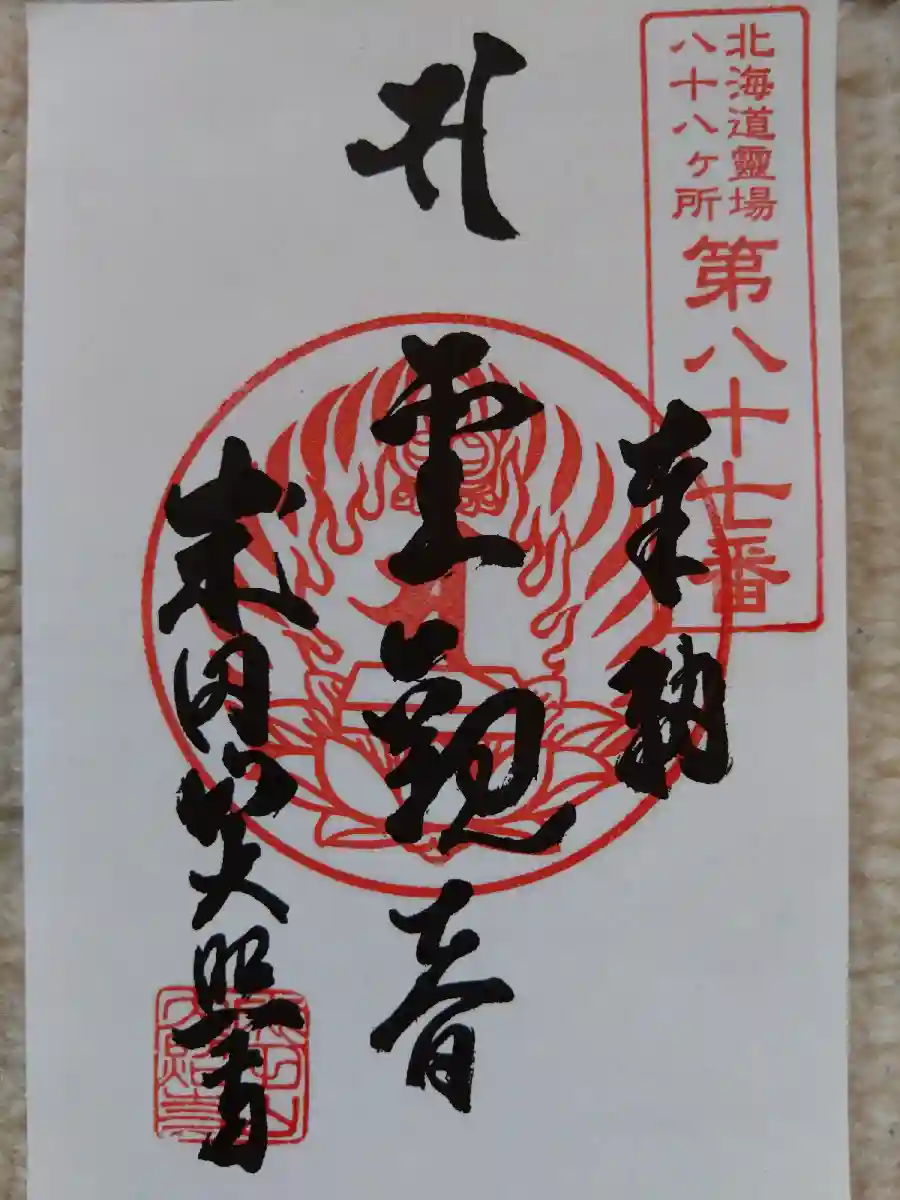 北海道靈場
八十八ヶ所
第八十七番
奉納
聖観音
成田山大照寺